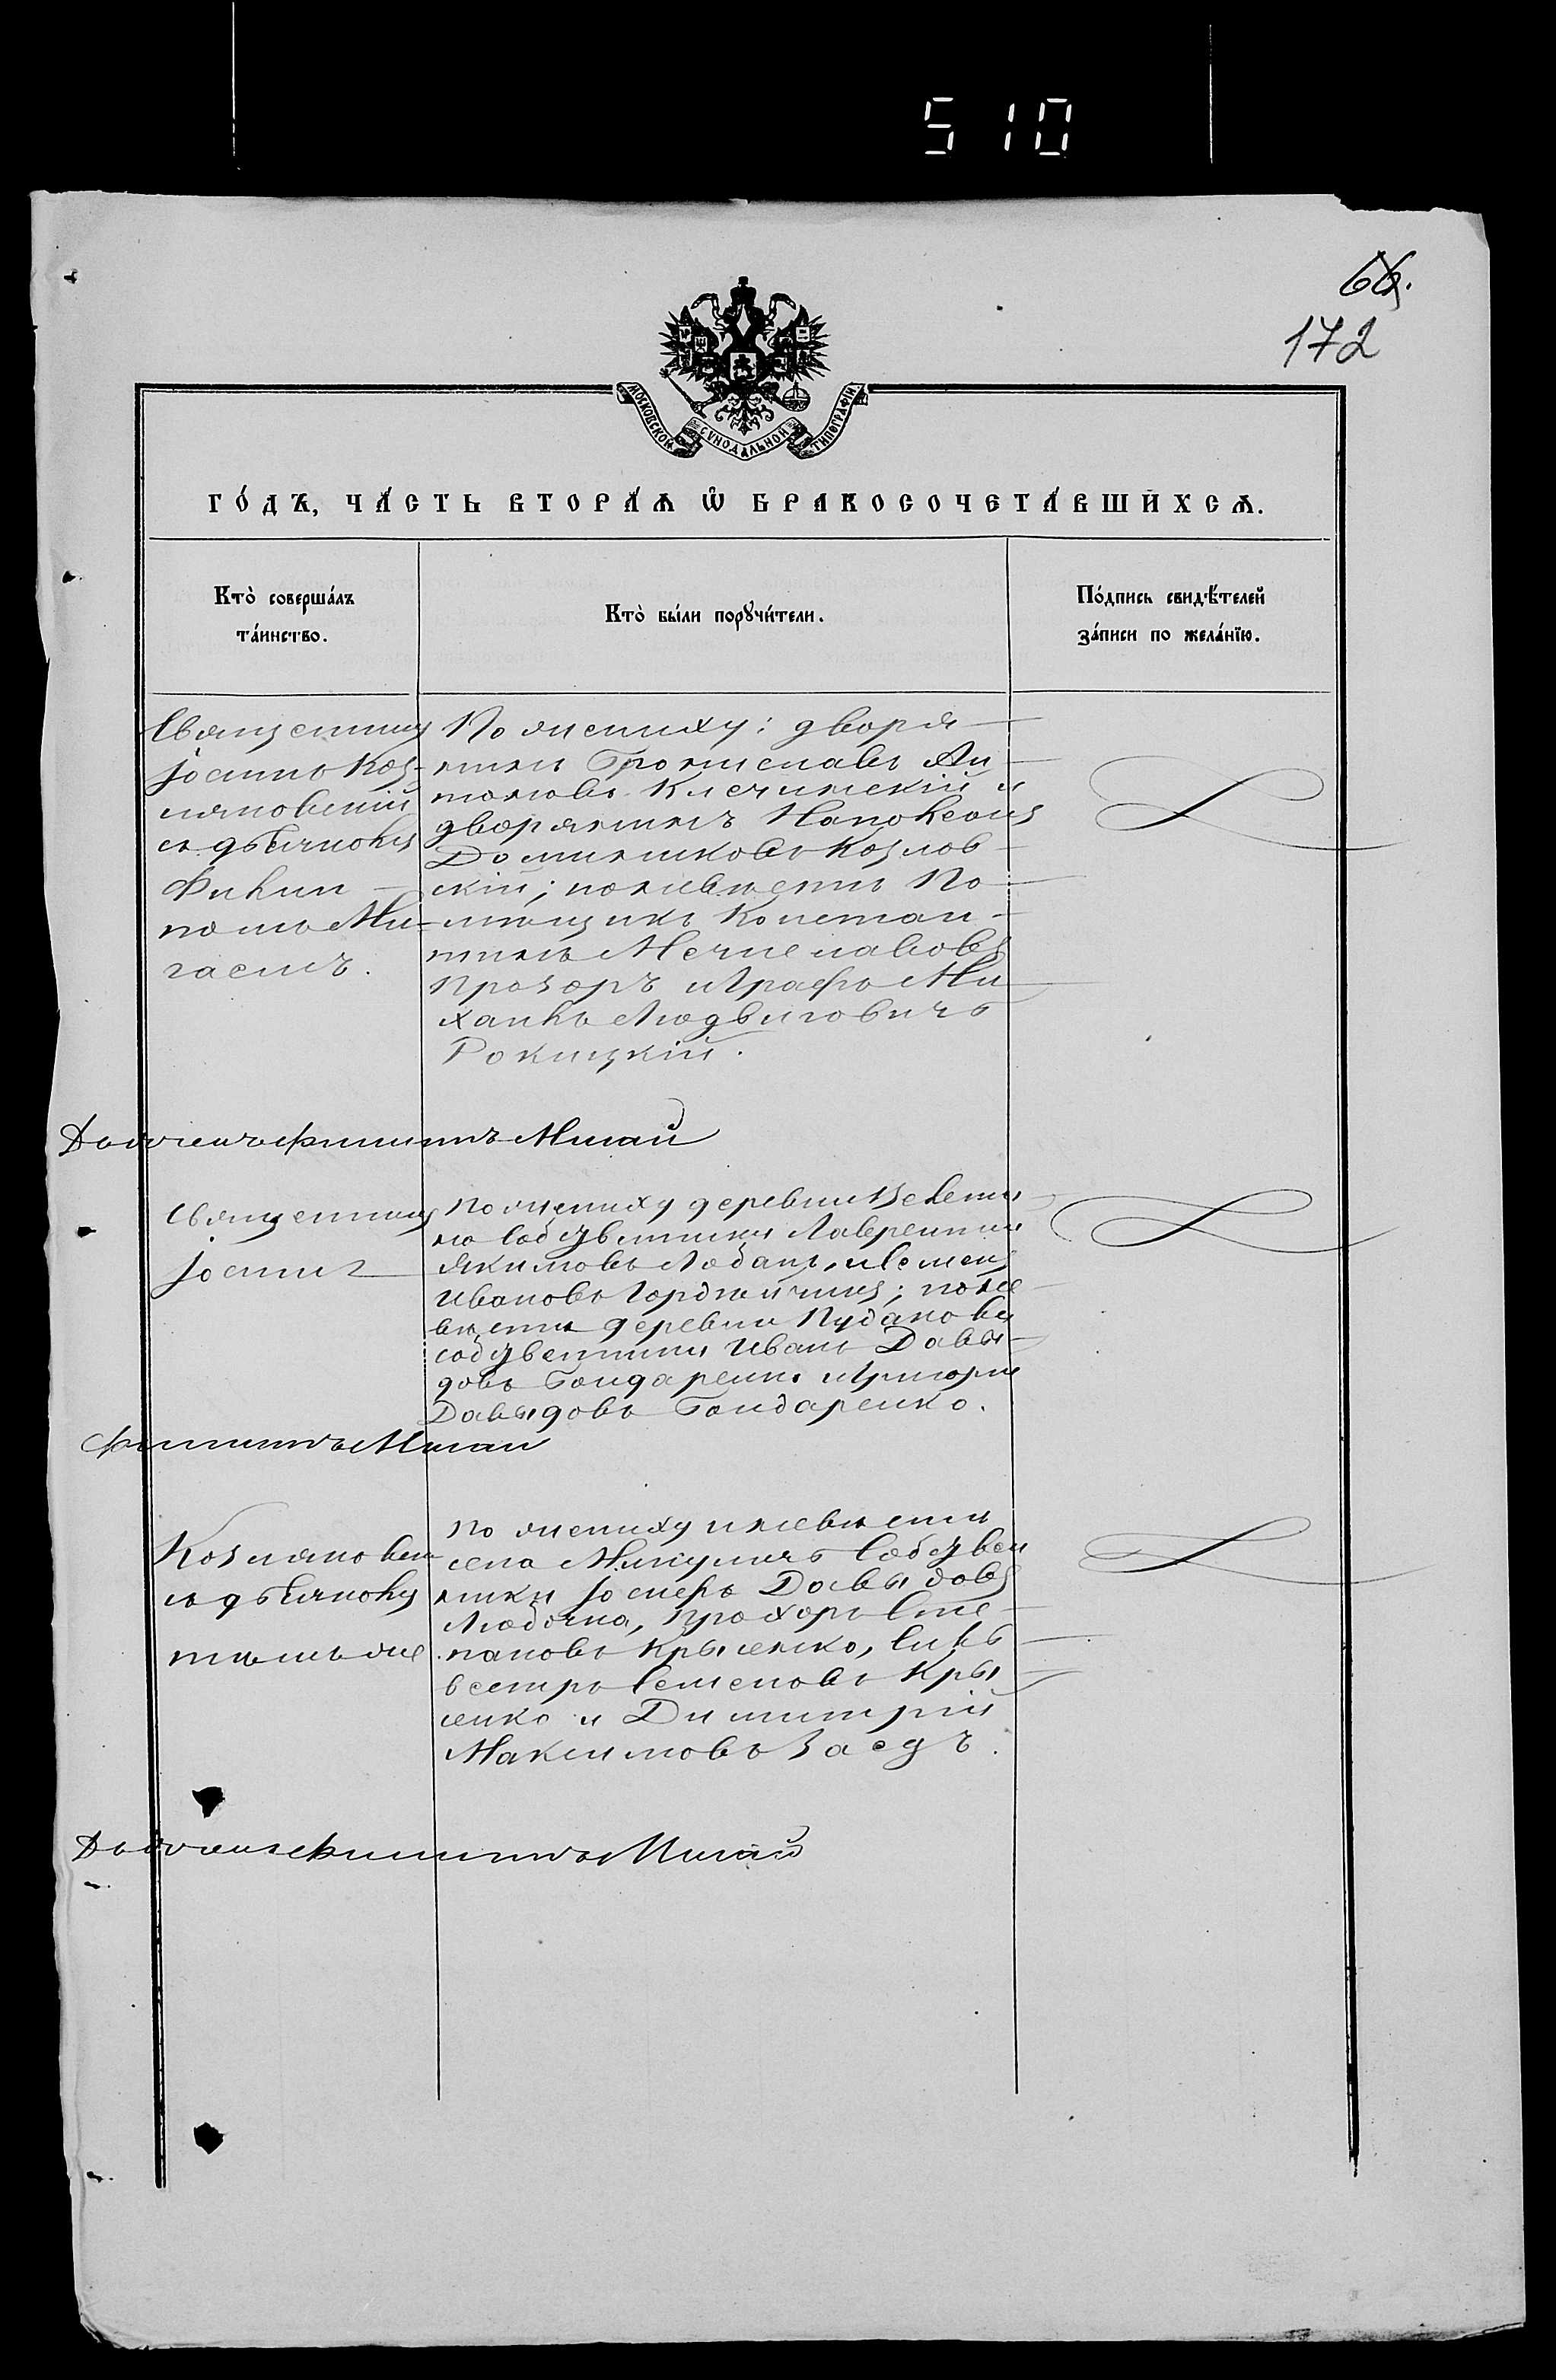 510
66.
172
МОСКОВСКОЙ СѴНОДАЛЬНОЙ ТИПОГРАФІИ
ГО́ДЪ, ЧА́СТЬ ВТОРА́Ѧ Ѡ҆ БРАКОСОЧЕТА́ВШИХСѦ.
Кто̀ соверша́лъ
та́инство.
Кто̀ бы́ли порꙋчи́тели.
По́дпись свидѣ́телей
за́писи по жела́нїю.
Священникъ
Іоаннъ Коз-
мяновскій
съ дьячкомъ
Филип-
помъ Ми-
гаемъ.
По женихѣ: дворя-
нинъ Брониславъ Ан-
тоновъ Клечинскій и
дворянинъ Наполеонъ
Доминиковъ Козлов-
скій; по невѣстѣ По-
мѣщикъ Констан-
тинъ Мечиславовъ
Прозоръ и Графъ Ми-
хаилъ Людвиговичъ
Рокицкій.
Дьячекъ Филиппъ Мигай
Священникъ
Іоаннъ
По жениху деревни Велетина
собственники Лаврентій
Якимовъ и Семенъ
Ивановъ; по не
вѣстѣ деревни
собственники Иванъ Давы-
довъ Бондаренко и Григорій
Давыдовъ Бондаренко.
Филиппъ Мигай
Козмяновскій
съ дьячкомъ
тѣмъ же
По жениху и невѣстѣ
села Микуличъ Собствен
ники Іосифъ Давыдовъ
Прохоръ Сте-
пановъ Крысенко, Силь
вестръ Семеновъ Кры
сенко и Димитрій
Максимовъ Заедъ.
Дьячекъ Филиппъ Мигай